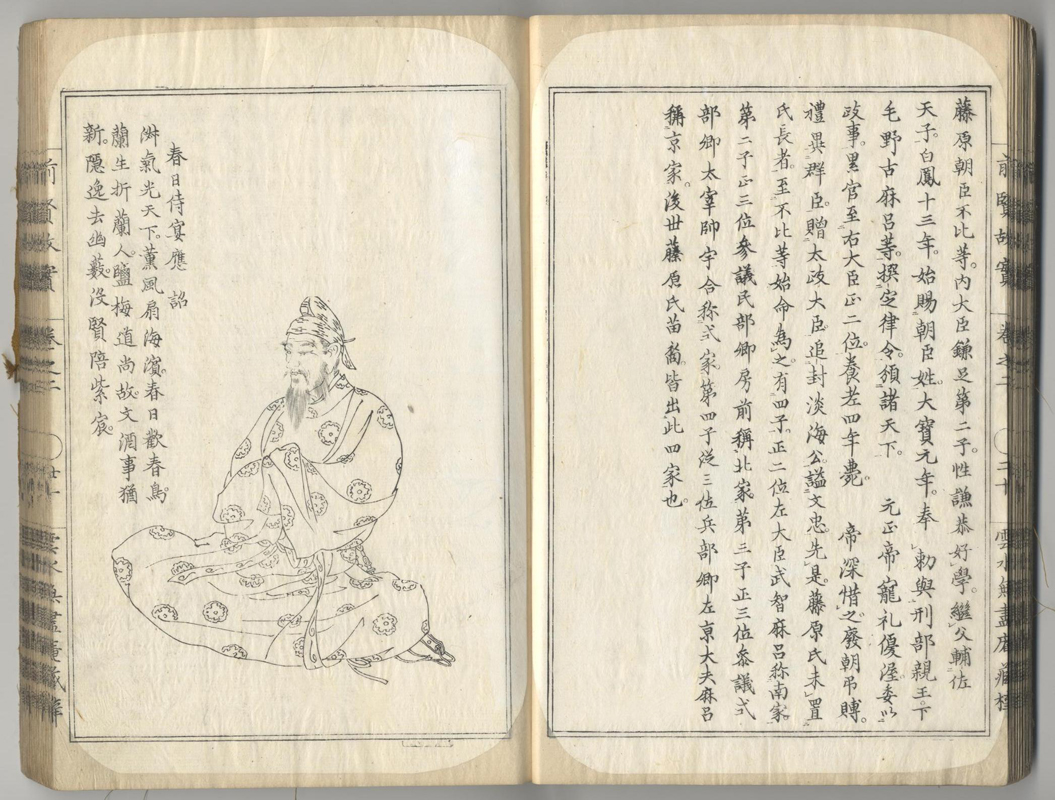 藤原朝臣不比等。内大臣鎌足第二子。性謙恭好學。繼父輔佐
天子。白鳳十三年。始賜朝臣姓。大寶元年。奉 勅與刑部親王。下
毛野古麻呂等。撰定律令。頒諸天下。 元正帝寵礼優渥。委以
政事。累官至右大臣正二位。養老四年薨。 帝深惜之。廢朝吊賻。
禮異群臣。贈太政大臣。追封淡海公。謚文忠。先是藤原氏未置
氏長者。至不比等始命為之。有四子。正二位左大臣武智麻呂称南家。
第二子正三位參議民部卿房前稱北家。第三子正三位參議式
部卿太宰帥宇合称式家。第四子從三位兵部卿左京大夫麻呂
稱京家。後世藤原氏苗裔皆出此四家也。
前賢故實 卷之二 二十
春日侍宴應 詔
淑氣光天下。薰風扇海濱。春日歡春鳥。
蘭生折蘭人。鹽梅道尚故。文酒事猶
新。隱逸去幽薮。沒賢陪紫宸。
前賢故實 卷之二